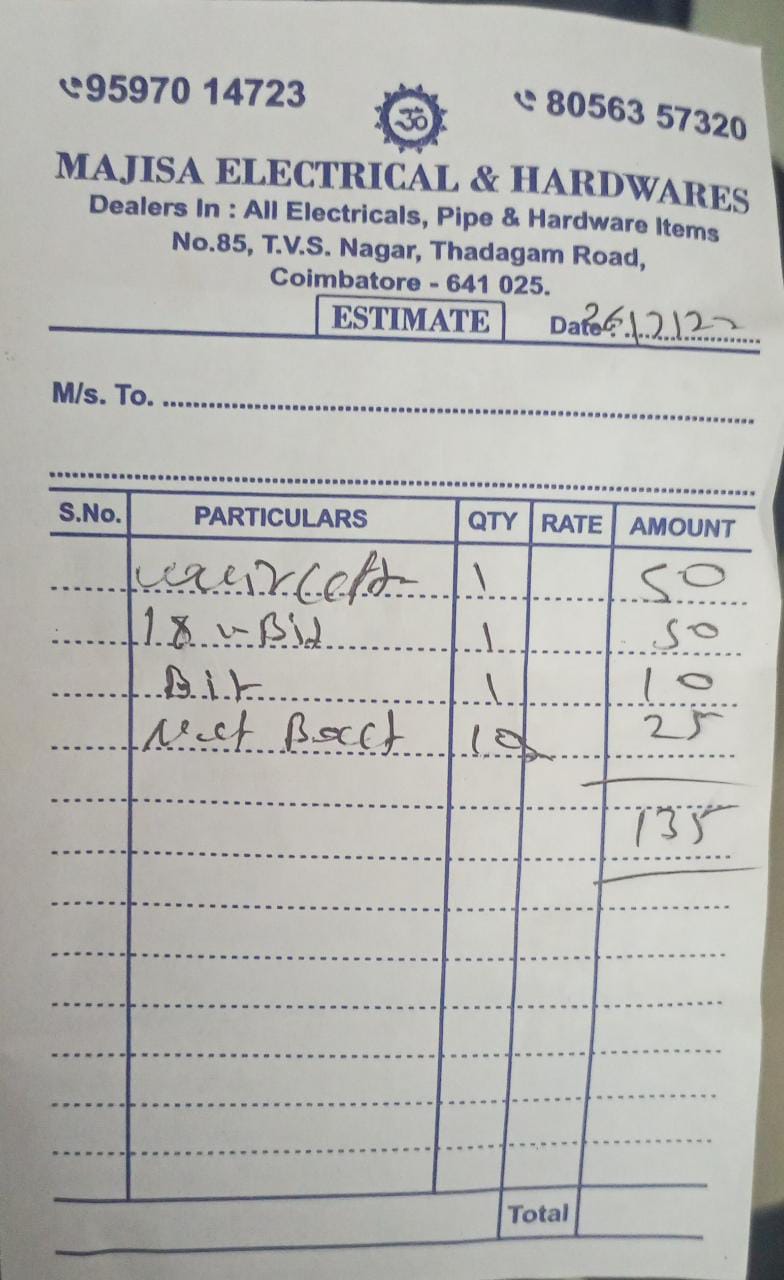 95970 14723 ॐ 80563 57320
MAJISA ELECTRICAL & HARDWARES
Dealers In : All Electricals, Pipe & Hardware Items
No.85, T.V.S. Nagar, Thadagam Road,
Coimbatore - 641 025.
ESTIMATE Date : 26/12/22
M/s. To.
S.No. PARTICULARS QTY RATE AMOUNT
1 50
18 Bit 1 50
Bit 1 10
Nut 10 25
135
Total